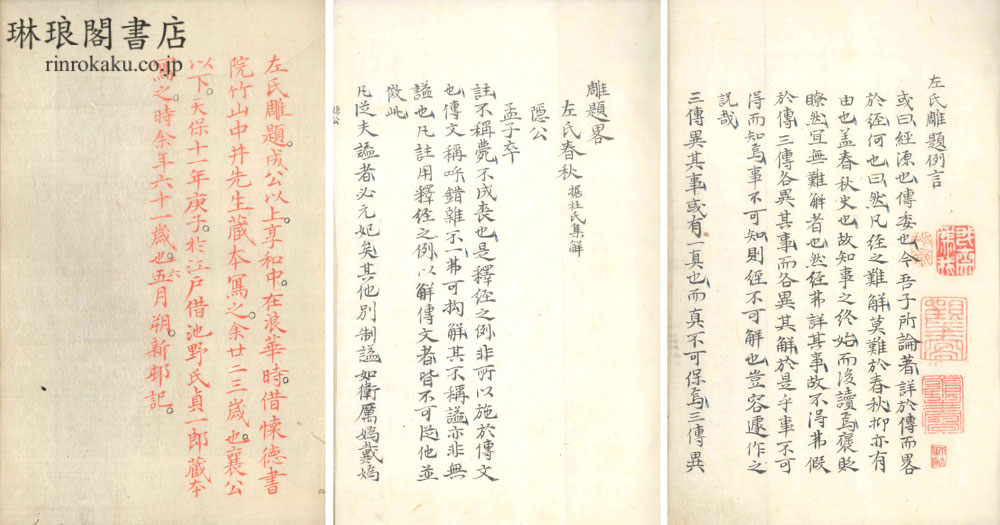 左氏雕題例言
或曰經源也傳委也今吾子所論著詳於傳而畧
於經何也曰然凡經之難解莫難於春秋抑亦有
由也盖春秋史也故知事之終始而後讀焉褒貶
瞭然宜無難解者也然經弗詳其事故不得弗假
於傳三傳各異其事而各異其解於是乎事不可
得而知焉事不可知則經不可解也豈容遽作之
説哉
三傳異其事或有一真也而真不可保焉三傳異
雕題畧
左氏春秋 據杜氏集解
隠公
孟子卒
註不稱薨不成喪也是釋經之例非所以施於傳文
也傳文稱呼錯雜不一弗可拘解其不稱謚亦非無
謚也凡註用釋經之例以解傳文者皆不可從他並
倣此
凡從夫謚者必元妃矣其他別制謚如衛厲嬀戴嬀
隠公
左氏雕題。成公以上享和中。在浪華時借懐德書
院竹山中井先生藏本寫之。余廿二三歳也。襄公
以下。天保十一年庚子。於江戸借池野氏貞一郎藏本
寫之。時余年六十一歳也。五六月朔。新邨記。
琳琅閣書店
rinrokaku.co.jp